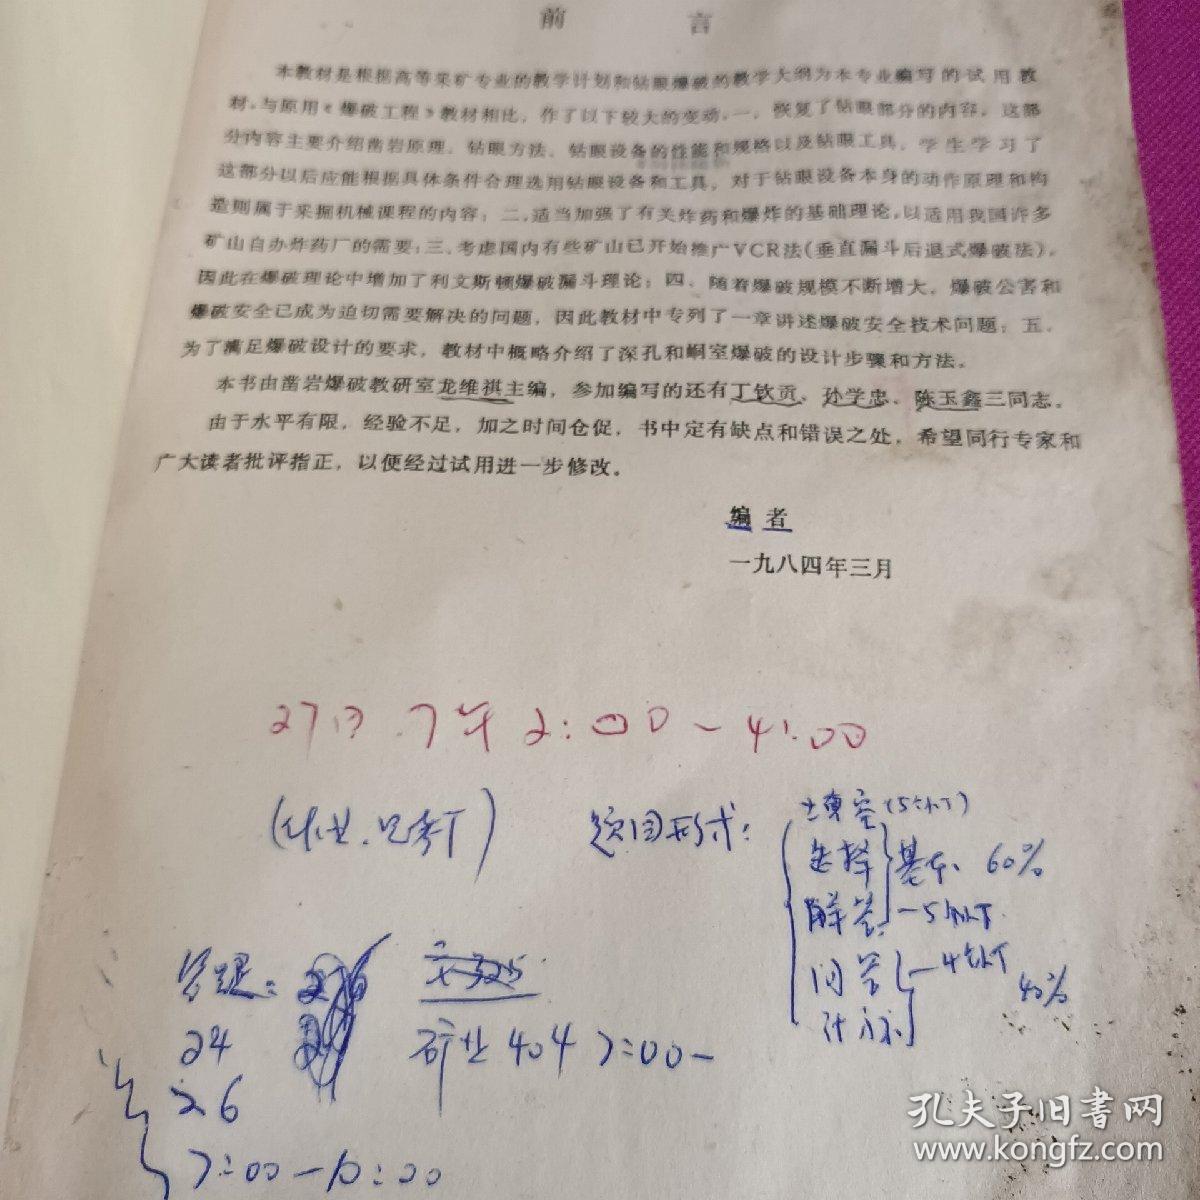 前言
本教材是根据高等采矿专业的教学计划和钻眼爆破的教学大纲为本专业编写的试用教
材。与原用《爆破工程》教材相比，作了以下较大的变动，一，恢复了钻眼部分的内容。这部
分内容主要介绍凿岩原理、钻眼方法、钻眼设备的性能和规格以及钻眼工具，学生学习了
这部分以后应能根据具体条件合理选用钻眼设备和工具，对于钻眼设备本身的动作原理和构
造则属于采掘机械课程的内容；二、适当加强了有关炸药和爆炸的基础理论，以适用我国许多
矿山自办炸药厂的需要；三、考虑国内有些矿山已开始推广VCR法(垂直漏斗后退式爆破法)，
因此在爆破理论中增加了利文斯顿爆破漏斗理论；四、随着爆破规模不断增大，爆破公害和
爆破安全已成为迫切需要解决的问题，因此教材中专列了一章讲述爆破安全技术问题；五、
为了满足爆破设计的要求，教材中概略介绍了深孔和峒室爆破的设计步骤和方法。
本书由凿岩爆破教研室龙维祺主编，参加编写的还有丁钦贡、孙学忠、陈玉鑫三同志。
由于水平有限，经验不足，加之时间仓促，书中定有缺点和错误之处，希望同行专家和
广大读者批评指正，以便经过试用进一步修改。
编者
一九八四年三月
27日.下午2:00-4:00
题目形式：
填空
选择 基本、60%
解答
问答 40%
答疑：
24 矿业404 7:00-
26
7:00-10:00
孔夫子旧书网
www.kongfz.com